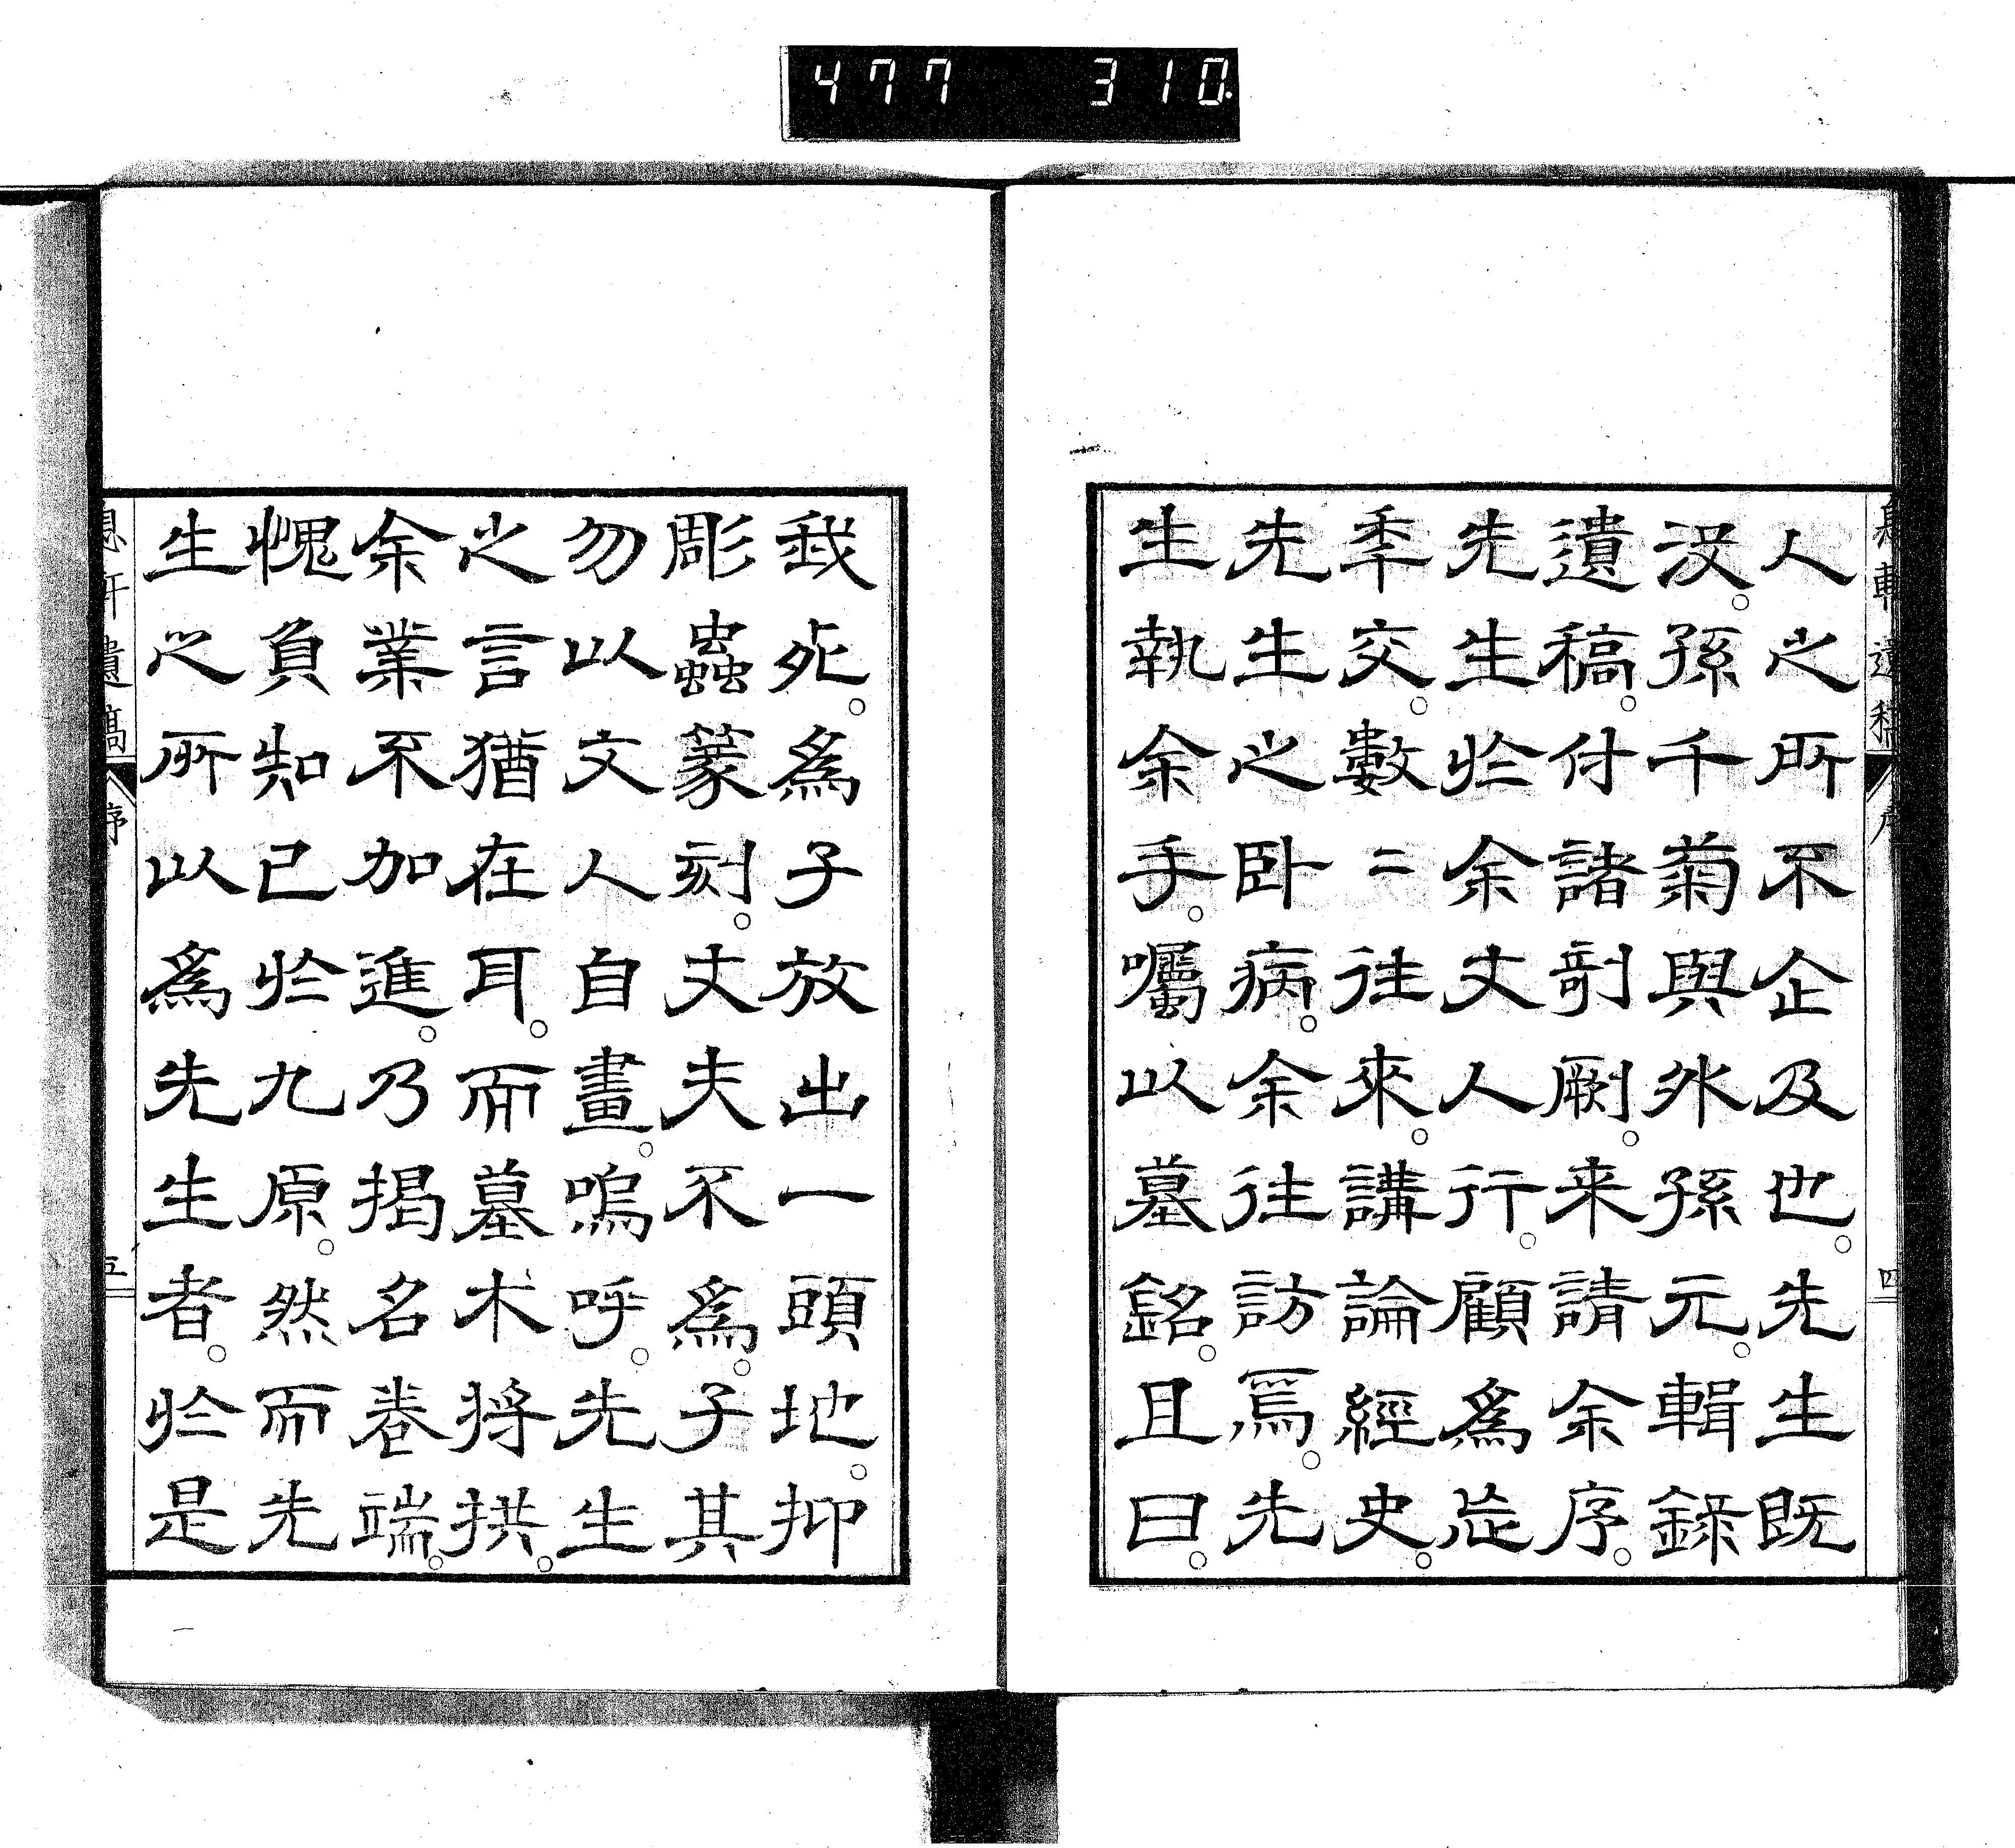 477 310.
人之所不企及也。先生既
沒。孫千菊與外孫元。輯錄
遺稿。付諸剞劂。来請余序。
先生於余丈人行。顧為忘
年交。數〻往來。講論經史。
先生之臥病。余往訪焉。先
生執余手。囑以墓銘。且曰。
我死。為子放出一頭地。抑
彫蟲篆刻。丈夫不為。子其
勿以文人自畫。嗚呼。先生
之言猶在耳。而墓木將拱。
余業不加進。乃揭名卷端。
愧負知己於九原。然而先
生之所以為先生者。於是
息軒遺稿 序 四
息軒遺稿 序 五